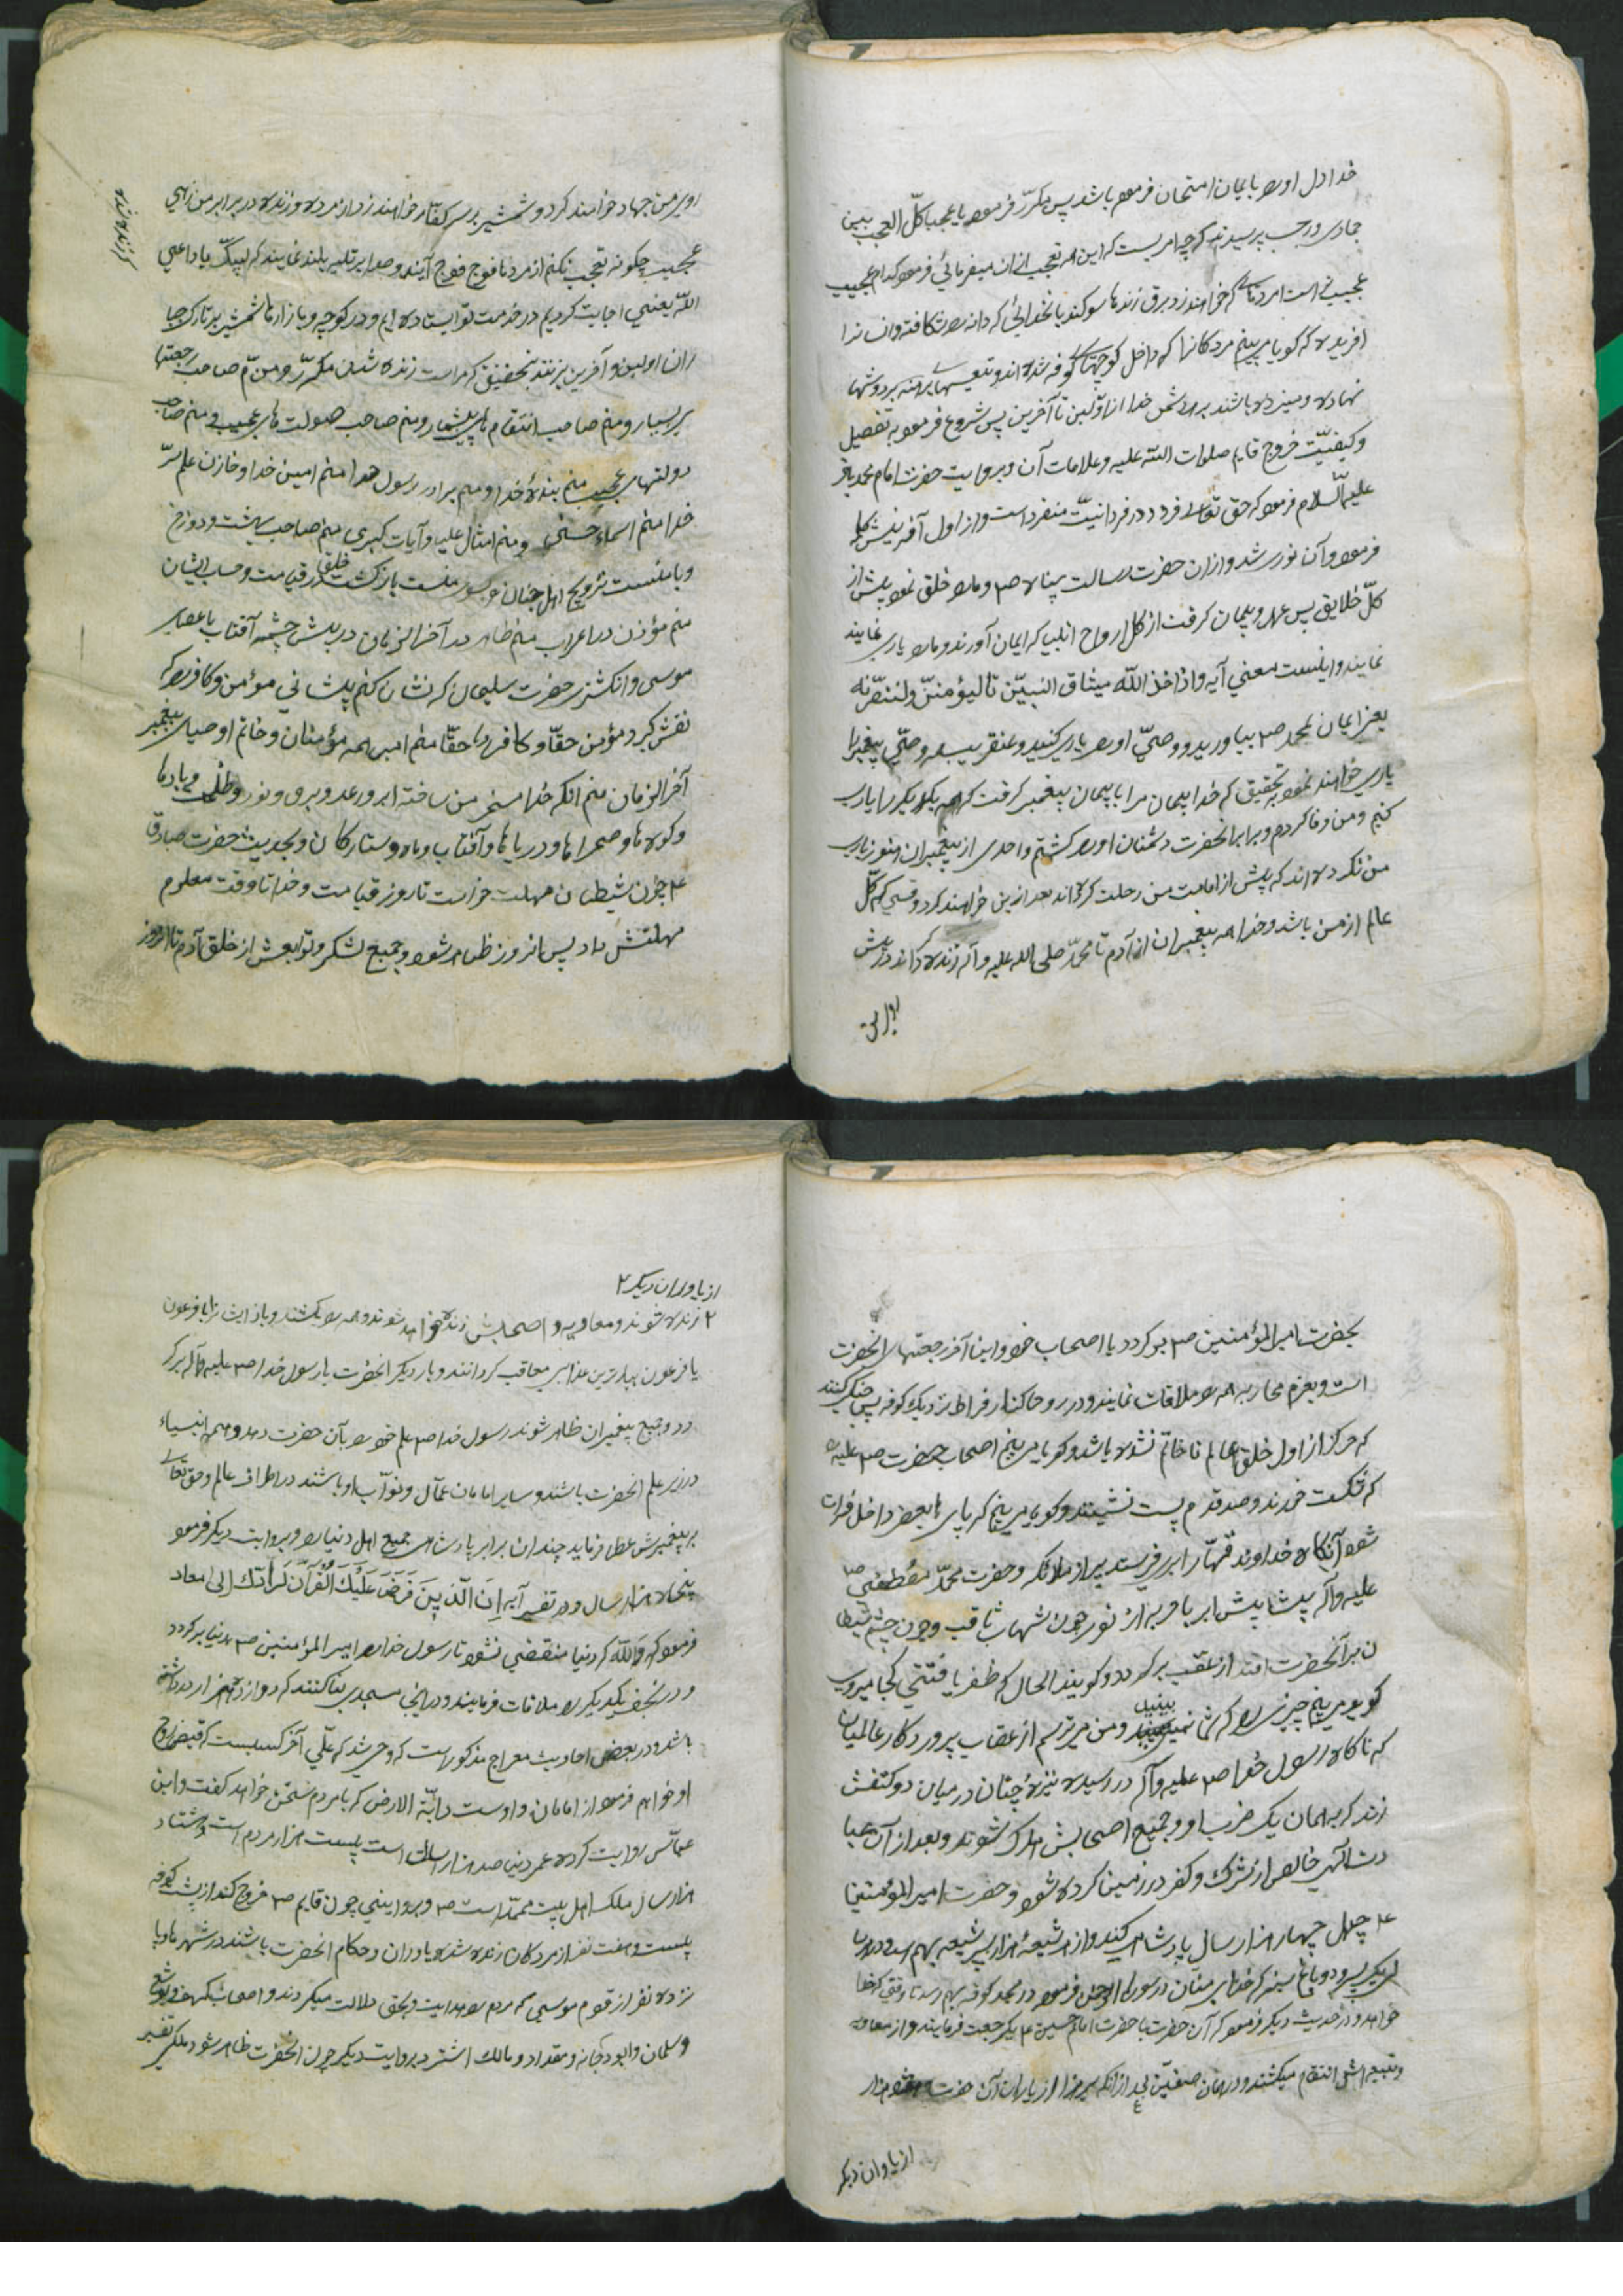 خدا دل او را بایمان امتحان فرموده باشد پس مکرّر فرمود یا عجبا کلّ العجب بین
جمادی و رجب پرسیدند که چه امریست که این همه تعجب از ان میفرمائی فرمود کدام عجیب
عجیب تر است امردنانی که خواهند زد برق زندها سوکند بانخدائی که دانه را شکافته وانسانرا
افریده که کویا می بینم مردکانرا که داخل کوچهای کوفه شده اند و تیغهای برهنه بر دوشها
نهاده و میزده باشند بر دشمن خدا از اوّلین تا آخرین پس شروع فرمود به تفصیل
و کیفیّت خروج قایم صلوات الله علیه و علامات آن و بروایت حضرت امام محمد باقر
علیه السلام فرمود که حق تعالی فرد در فردانیّت منفرد است و از اول آفرینش
فرمود و آن نور شد و ازان حضرت رسالت پناه ص و مارا خلق نمود پیش از
کلّ خلایق پس عهد و پیمان کرفت از کل ارواح انبیا که ایمان آورند و مارا یاری نمایند
نمایند و اینست معنی آیه واذ اخذ الله میثاق النبیّن تا لیؤمننّ ولننصرنّه
یعنی ایمان بمحمد ص بیاورید و وصیّ او را یاری کنید و عنقریب همه وصیّ پیغمبر را
یاری خواهند نمود بتحقیق که خدا پیمان مرا با پیمان پیغمبر کرفت که همه یکدیکر را یاری
کنیم و من وفا کردم و برابر انحضرت دشمنان او را کشتم واحدی از پیغمبران هنوز یاری
من نکرده اند که پیش از امامت من رحلت کرده اند بعد ازین خواهند کرد وقتی که کلّ
عالم از من باشد و خدا همه پیغمبران از آدم تا محمّد صلی الله علیه و آله زنده کرداند در پیش
او بر من جهاد خواهند کرد و شمشیر بر سر کفّار خواهند زد از مرده و زنده در برابر من زهی
عجیب چکونه تعجب نکنم از مردها فوج فوج آیند و صدا بر تلبیه بلند نمایند که لبیک یا داعی
الله یعنی اجابت کردیم در خدمت تو ایستاده ایم و در کوچه و بازارها شمشیر بر تارک جبا
ران اولین و آخرین بزنند بتحقیق که مراست زنده شدن مکرّر و منم صاحب رجعتها
بر بسیار و منم صاحب انتقام های بیشمار و منم صاحب صولت های عجیب و منم صاحب
دولتهای عجیب منم بندهٔ خدا و منم برادر رسول خدا منم امین خدا و خازن علم سرّ
خدا منم اسماء حسنی و منم امثال علیا و آیات کبری منم صاحب بهشت و دوزخ
و با منست تزویج اهل جنان و بسوی منست بازکشت خلق در قیامت و حساب ایشان
منم مؤذن در اعراب منم ظاهر در آخر الزمان در پیش چشمه آفتاب با عصای
موسی و انکشتر حضرت سلیمان که نشان کنم پیشانی مؤمن و کافر را که
نقش کیرد مؤمن حقّا و کافر را حقّا منم امیر همه مؤمنان و خاتم اوصیای پیغمبر
آخر الزمان منم انکه خدا مسخر من ساخته ابر و رعد و برق و نور و ظلمت و بادها
و کوه ها و صحراها و دریاها و آفتاب و ماه و ستارکان و بحدیث حضرت صادق
ع چون شیطان مهلت خواست تا روز قیامت و خدا تا وقت معلوم
مهلتش داد پس انروز ظاهر شود و جمیع لشکر و توابعش از خلق آدم تا انروز
بحضرت امیر المؤمنین ص برکردد با اصحاب خود و اینا آخر رجعتهای انحضرت
است و بعزم محاربه همه را ملاقات نمایند و در روحا کنار فراط نزدیک کوفه پس جنک کنند
که هرکز از اول خلق عالم تا خاتم نشده باشد و کویا می بینم اصحاب حضرت ص علیه
که شکست خورند و صد قدم پست نشینند و کویا می بینم که پای ها بعضی داخل فرات
شود آنکاه خداوند قهّار ابری فرستد پر از ملائکه و حضرت محمّد مصطفی ص
علیه و آله پیشاپیش ابر با حربه از نور چون شهاب ثاقب و چون چشم شیطا
ن بر آنحضرت افتد از عقب برکردد و کویند الحال که ظفر یافتنی کجا میروی
کوید می بینم چیزی را که شما نمی بینید و من میترسم از عقاب پروردکار عالمیان
که ناکاه رسول خدا ص علیه و آله در رسیده نیزهٔ چنان در میان دو کتفش
زند که بهمان یک ضرب او و جمیع اصحابش هلاک شوند و بعد از آن عبا
دت الهی خالص از شرک و کفر در زمین کرده شود و حضرت امیر المؤمنین
ع چهل چهار هزار سال پادشاهی کند و از هر شیعهٔ هزار پسر شیعه بهم رسد و در هر سا
لی یک پسر و دو باغ سبز که خدای منّان در سوره الرحمن فرمود در مجد کوفه بهم رسد تا وقتی که خدا
خواهد و در حدیث دیکر فرمود که آن حضرت با حضرت امام حسین ع یک رجعت فرمایند و از معاویه
و تبیعه اش انتقام میکشند و در همان صفیّن بعد از انکه سی هزار از یاران آن حضرت و هفتاد هزار
از یاوران دیکر
از یاوران دیکر ۲
۲ زنده شوند و معاویه و اصحابش زنده خواهد شوند و همه را بکشند و باز ایشانرا با فرعون
یا فرعون ببدترین عذابی معاقب کردانند و بار دیکر انحضرت با رسول خدا ص علیه و آله برکر
دد و جمیع پیغمبران ظاهر شوند رسول خدا ص علم خود را بآن حضرت دهد و همه انبیاء
در زیر علم انحضرت باشند و سایر امامان عمّال و نوّاب او باشند در اطراف عالم و حق تعالی
به پیغمبرش عطا فرماید چندان برابر پادشاهی جمیع اهل دنیا را و بروایت دیکر فرمود
پنجاه هزار سال و در تفسیر آیه اِنَ الّذَیِنَ فَرَضَ عَلَیْكَ الْقُرْآنَ لَرَادّكَ اِلیٰ معاد
فرمود که والله که دنیا منقضی نشود تا رسول خدا و امیر المؤمنین ص بدنیا برکردد
و در نجف یکدیکر را ملاقات فرمایند و در انجا مسجدی بنا کنند که دوازده هزار در داشته
باشد و در بعض احادیث معراج مذکور است که وحی شد که علّی آخر کسیست که قبض روح
او خواهم فرمود از امامان و اوست دابّة الارض که با مردم سخن خواهد کفت و ابن
عبّاس روایت کرده عمر دنیا صد هزار سال است بیست هزار مردم است و هشتاد
هزار سال ملک اهل بیت محمّد است ص و بروایتی چون قایم ص خروج کند از پشت کوفه
بیست و هفت نفر از مردکان زنده شده یاوران و حکام انحضرت باشند در شهرها و پا
نزده نفر از قوم موسی که مردم را هدایت و بحق دلالت میکردند و اصحاب کهف و یوشع
و سلمان و ابو دجانه و مقداد و مالک اشتر و بروایت دیکر چون انحضرت ظاهر شود ملکی بقبر